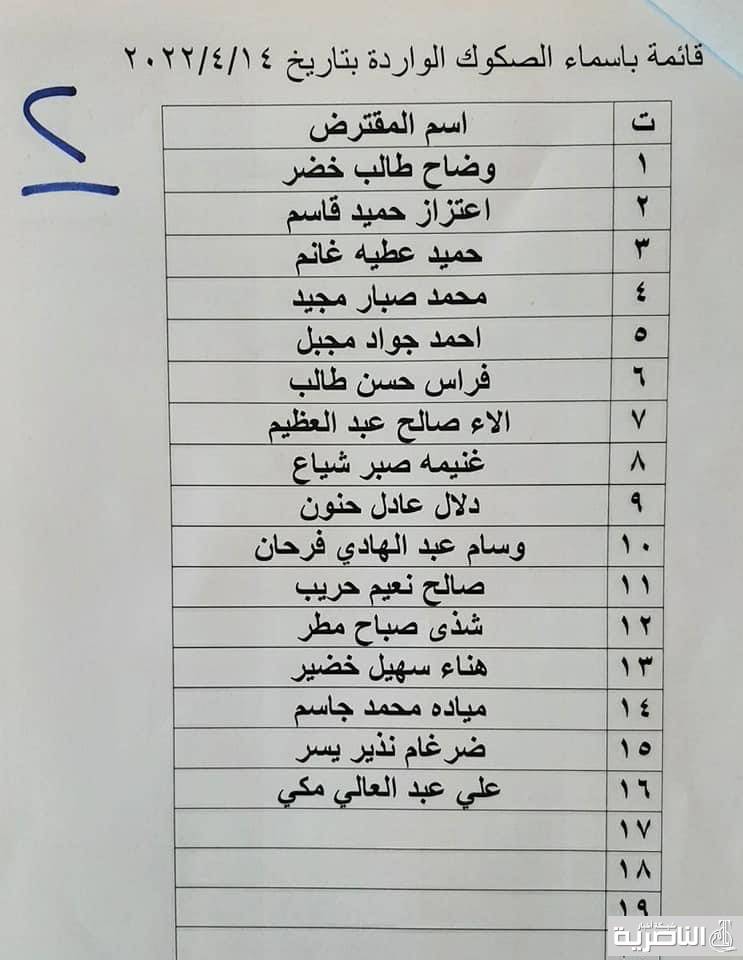 قائمة باسماء الصكوك الواردة بتاريخ ٢٠٢٢/٤/١٤
٢
ت اسم المقترض
١ وضاح طالب خضر
٢ اعتزاز حميد قاسم
٣ حميد عطيه غانم
٤ محمد صبار مجيد
٥ احمد جواد مجبل
٦ فراس حسن طالب
٧ الاء صالح عبد العظيم
٨ غنيمه صبر شياع
٩ دلال عادل حنون
١٠ وسام عبد الهادي فرحان
١١ صالح نعيم حريب
١٢ شذى صباح مطر
١٣ هناء سهيل خضير
١٤ مياده محمد جاسم
١٥ ضرغام نذير يسر
١٦ علي عبد العالي مكي
١٧
١٨
١٩
شبكة اخبار
الناصرية